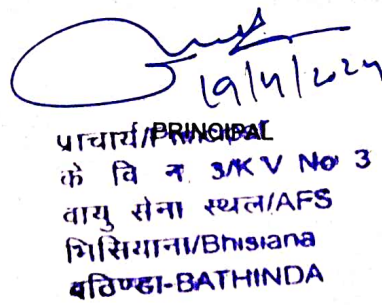 19/4/2024
प्राचार्य/PRINCIPAL
के वि न 3/K V No 3
वायु सेना स्थल/AFS
भिसियाना/Bhisiana
बठिण्डा-BATHINDA